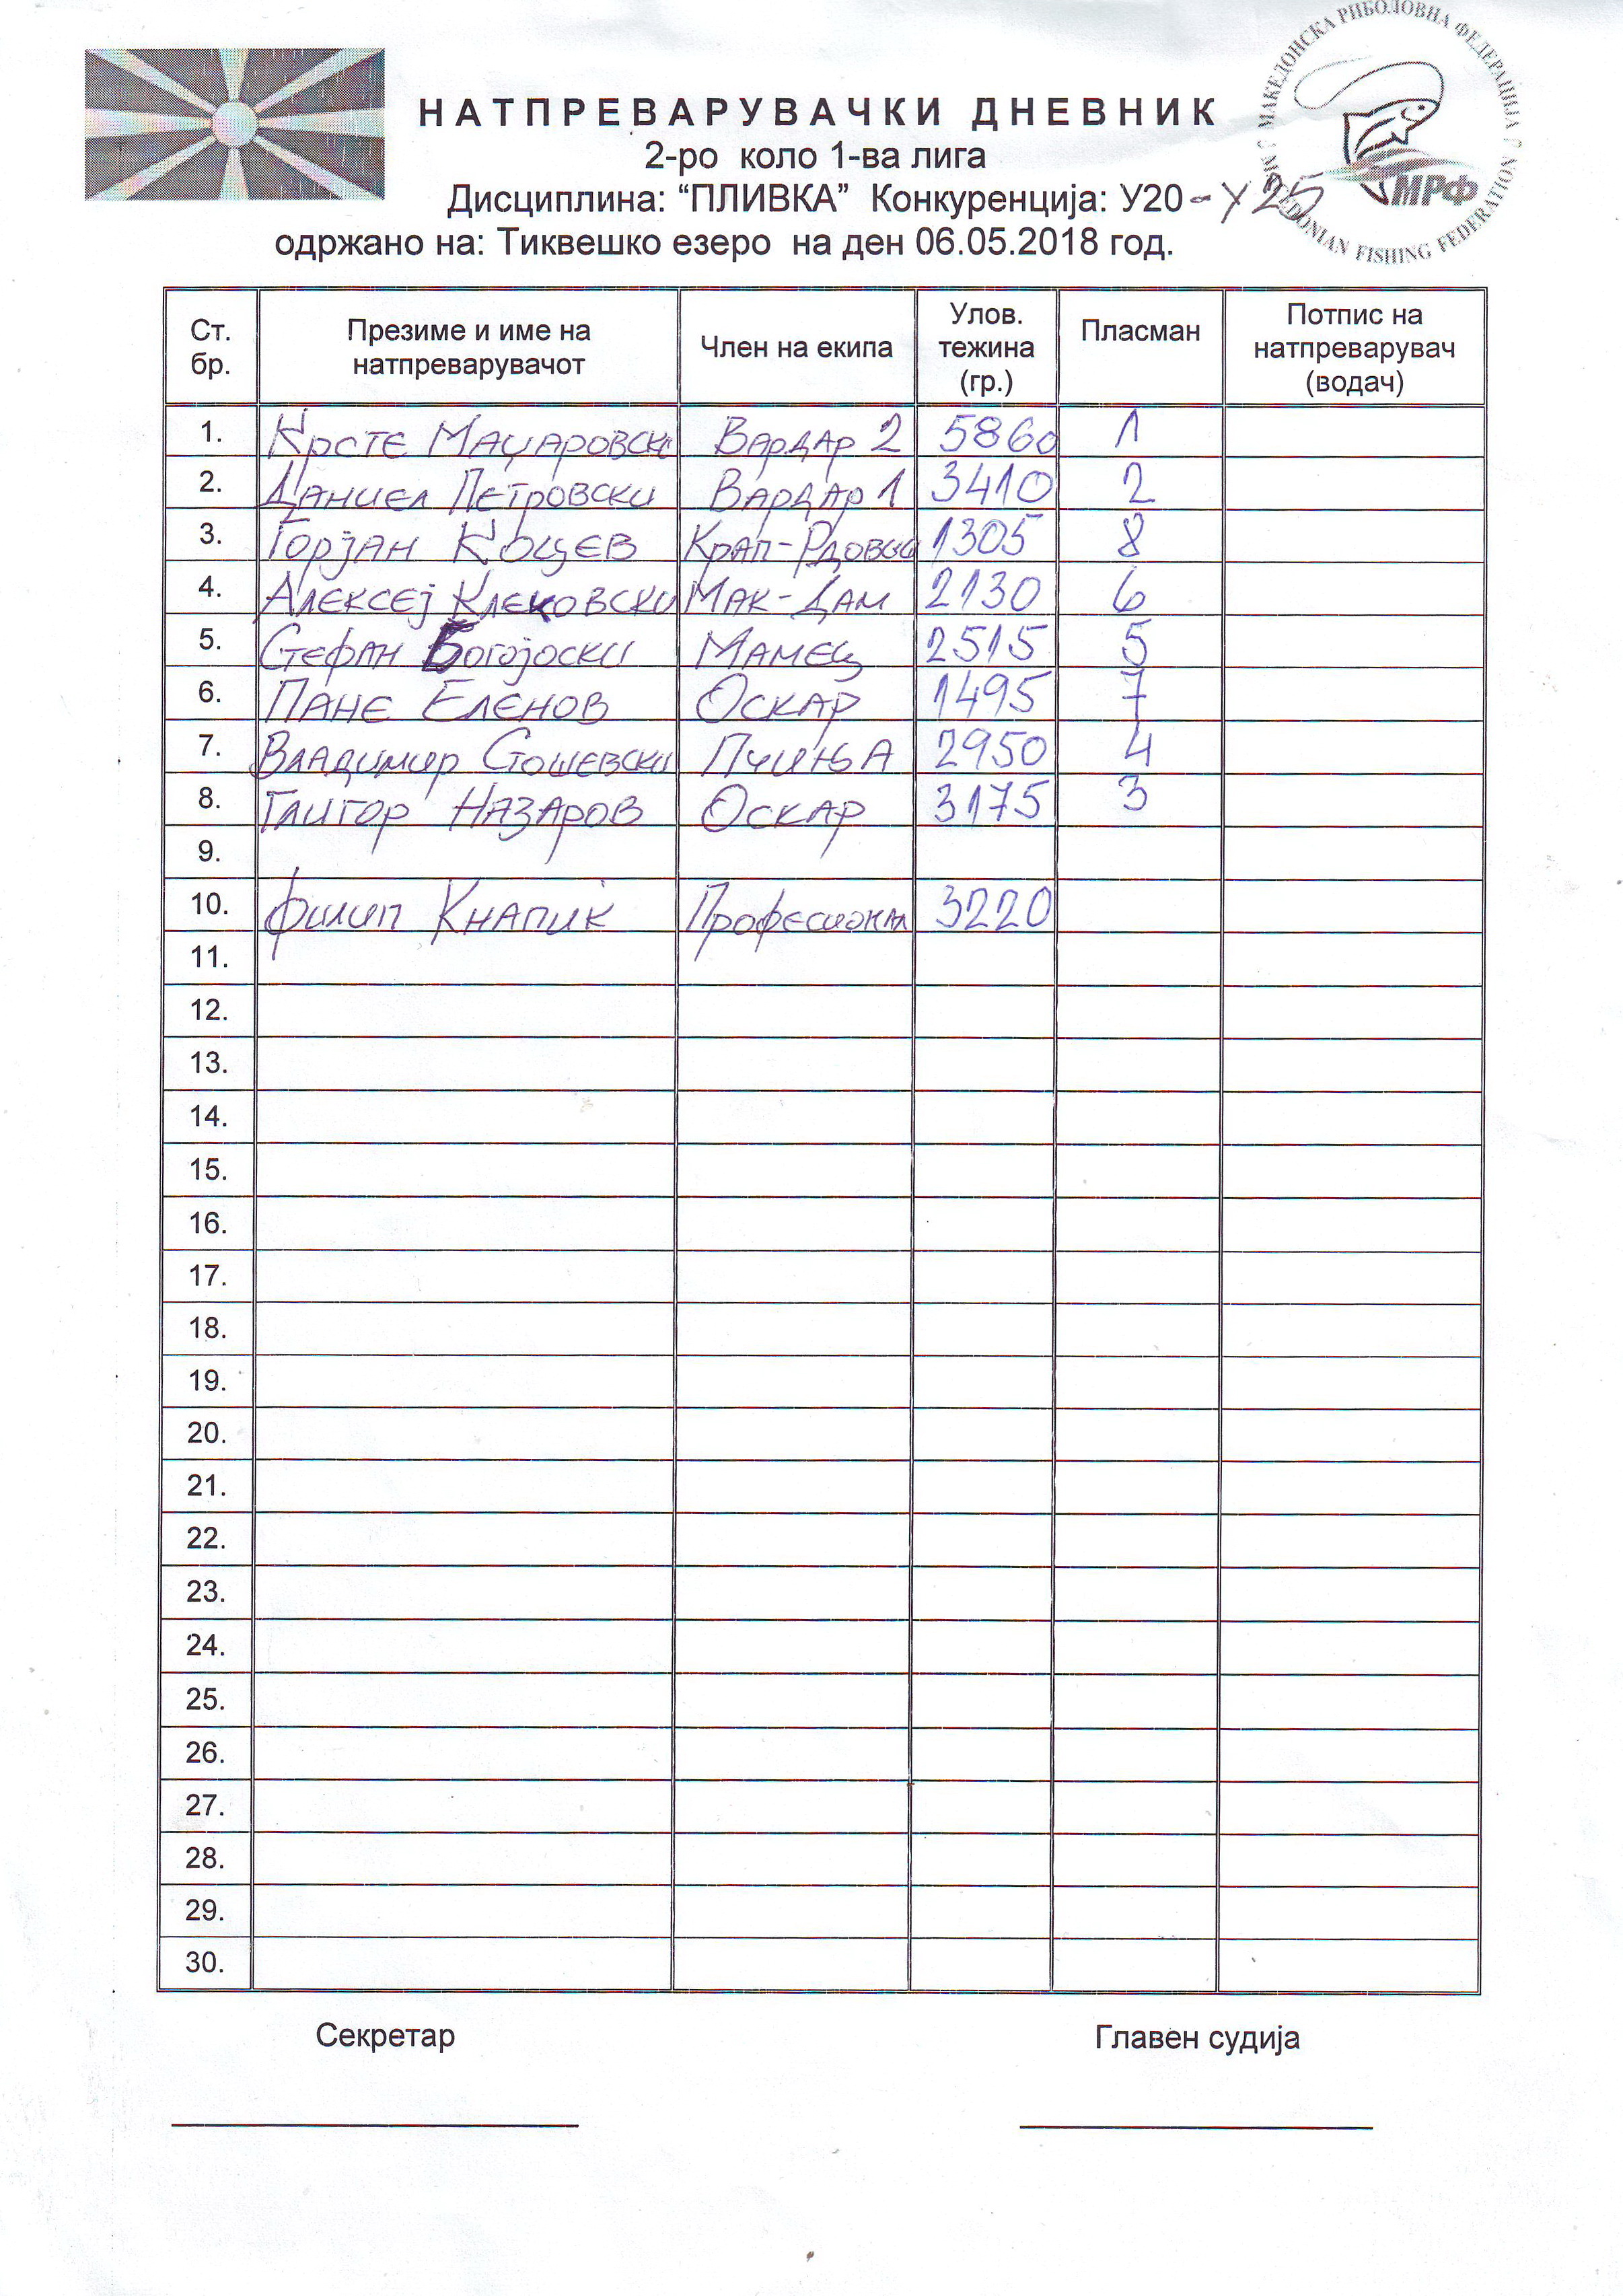 МАКЕДОНСКА РИБОЛОВНА ФЕДЕРАЦИЈА
MACEDONIAN FISHING FEDERATION
МРФ
НАТПРЕВАРУВАЧКИ ДНЕВНИК
2-ро коло 1-ва лига
Дисциплина: “ПЛИВКА” Конкуренција: У20 - У25
одржано на: Тиквешко езеро на ден 06.05.2018 год.
Ст. бр. Презиме и име на натпреварувачот Член на екипа Улов. тежина (гр.) Пласман Потпис на натпреварувач (водач)
1. Крсте Маџаровски Вардар 2 5860 1
2. Даниел Петровски Вардар 1 3410 2
3. Горјан Коцев Крап- 1305 8
4. Алексеј Клековски Мак-Дам 2130 6
5. Стефан Богојоски Мамец 2515 5
6. Пане Еленов Оскар 1495 7
7. Владимир Стошевски Пчиња 2950 4
8. Глигор Назаров Оскар 3175 3
9.
10. Филип Кнапик Професионал 3220
11.
12.
13.
14.
15.
16.
17.
18.
19.
20.
21.
22.
23.
24.
25.
26.
27.
28.
29.
30.
Секретар Главен судија